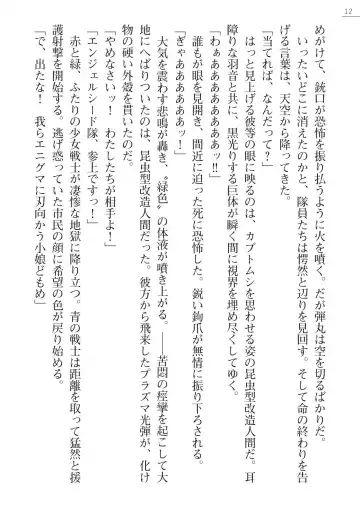 12
めがけて、銃口が恐怖を振り払うように火を噴く。だが弾丸は空を切るばかりだ。
いったいどこに消えたのかと、隊員たちは愕然と辺りを見回す。そして命の終わりを告
げる言葉は、天空から降ってきた。
「当てれば、なんだって？」
はっと見上げる彼等の眼に映るのは、カブトムシを思わせる姿の昆虫型改造人間だ。耳
障りな羽音と共に、黒光りする巨体が瞬く間に視界を埋め尽くしてゆく。
「わぁぁぁぁぁぁぁッ!!」
誰もが眼を見開き、間近に迫った死に恐怖した。鋭い鉤爪が無情に振り下ろされる。
「ぎゃああああああッ！」
大気を震わす悲鳴が轟き、〝緑色〟の体液が噴き上がる。――苦悶の痙攣を起こして大
地にへばりついたのは、昆虫型改造人間だった。彼方から飛来したプラズマ光弾が、化け
物の硬い外殻を貫いたのだ。
「やめなさいッ！　わたしたちが相手よ！」
「エンジェルシード隊、参上ですっ！」
赤と緑、ふたりの少女戦士が凄惨な地獄に降り立つ。青の戦士は距離を取って猛然と援
護射撃を開始する。逃げ惑っていた市民の顔に希望の色が戻り始める。
「で、出たな！　我らエニグマに刃向かう小娘どもめ」